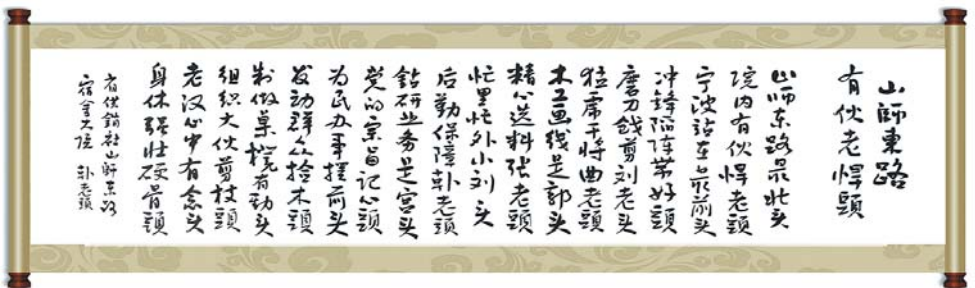 山師东路
有伙老悍頭
山师东路最北头
院内有伙悍老頭
宁波站在最前头
冲锋陷阵带好頭
磨刀戗剪刘老头
猛虎干将曲老頭
木工画线是郭头
精心选料张老頭
忙里忙外小刘头
后勤保障韩老頭
钻研业务是宫头
党的宗旨记心頭
为民办事摆前头
发动群众捡木頭
制做桌櫈有劲头
组织大伙剪枝頭
老汉心中有念头
身体强壮硬骨頭
省供销社山師东路
宿舍大院 卦老頭